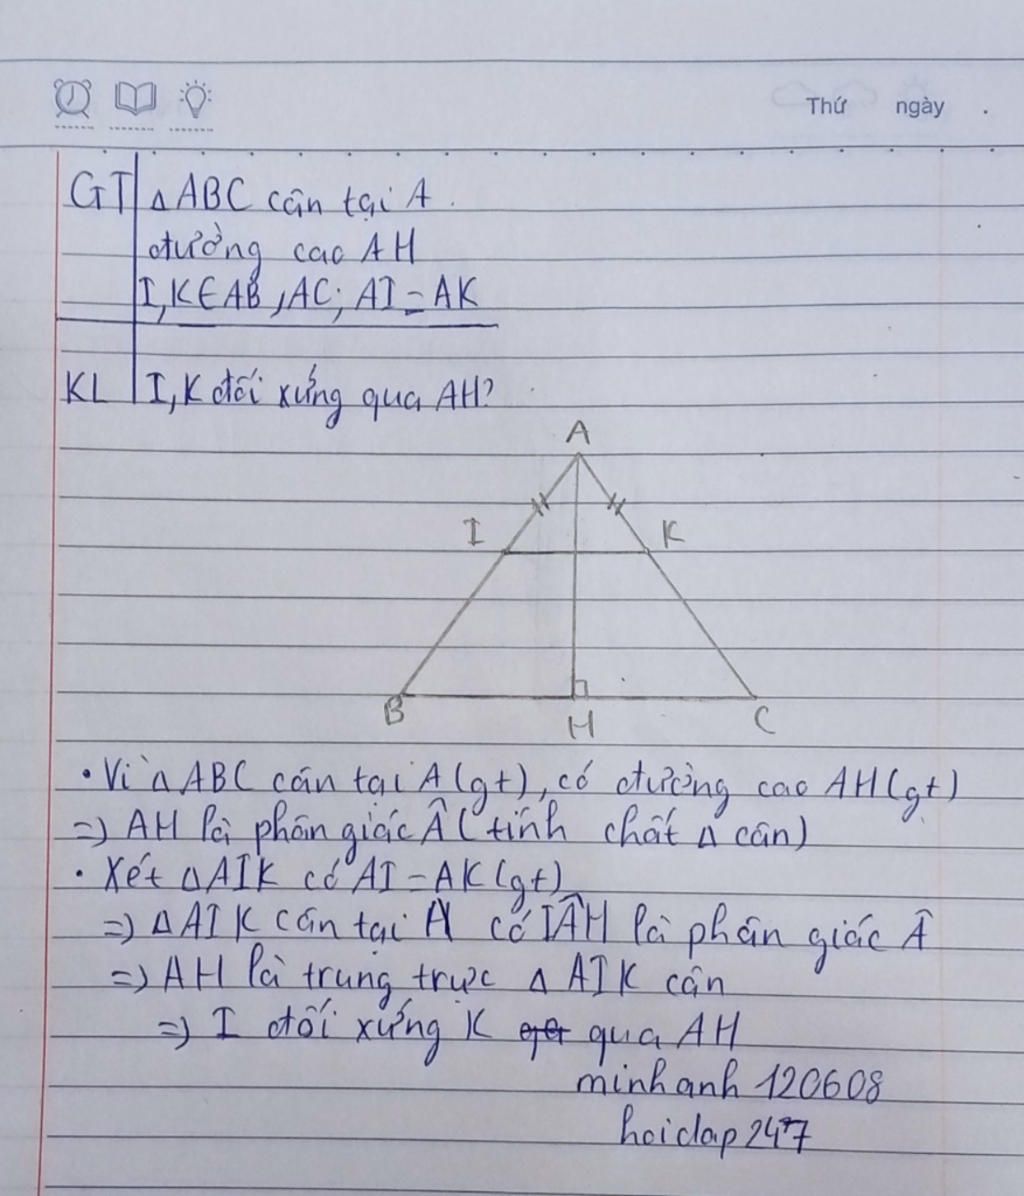 Thứ ngày .
GT ΔABC cân tại A.
đường cao AH
I,K∈AB,AC; AI=AK
KL I,K đối xứng qua AH?
A
I K
B H C
• Vì ΔABC cân tại A(gt), có đường cao AH(gt)
=) AH là phân giác Â (tính chất Δ cân)
• Xét ΔAIK có AI=AK(gt)
=) ΔAIK cân tại A có IÂH là phân giác Â
=) AH là trung trực ΔAIK cân
=) I đối xứng K qua AH
minhanh 120608
hoidap247